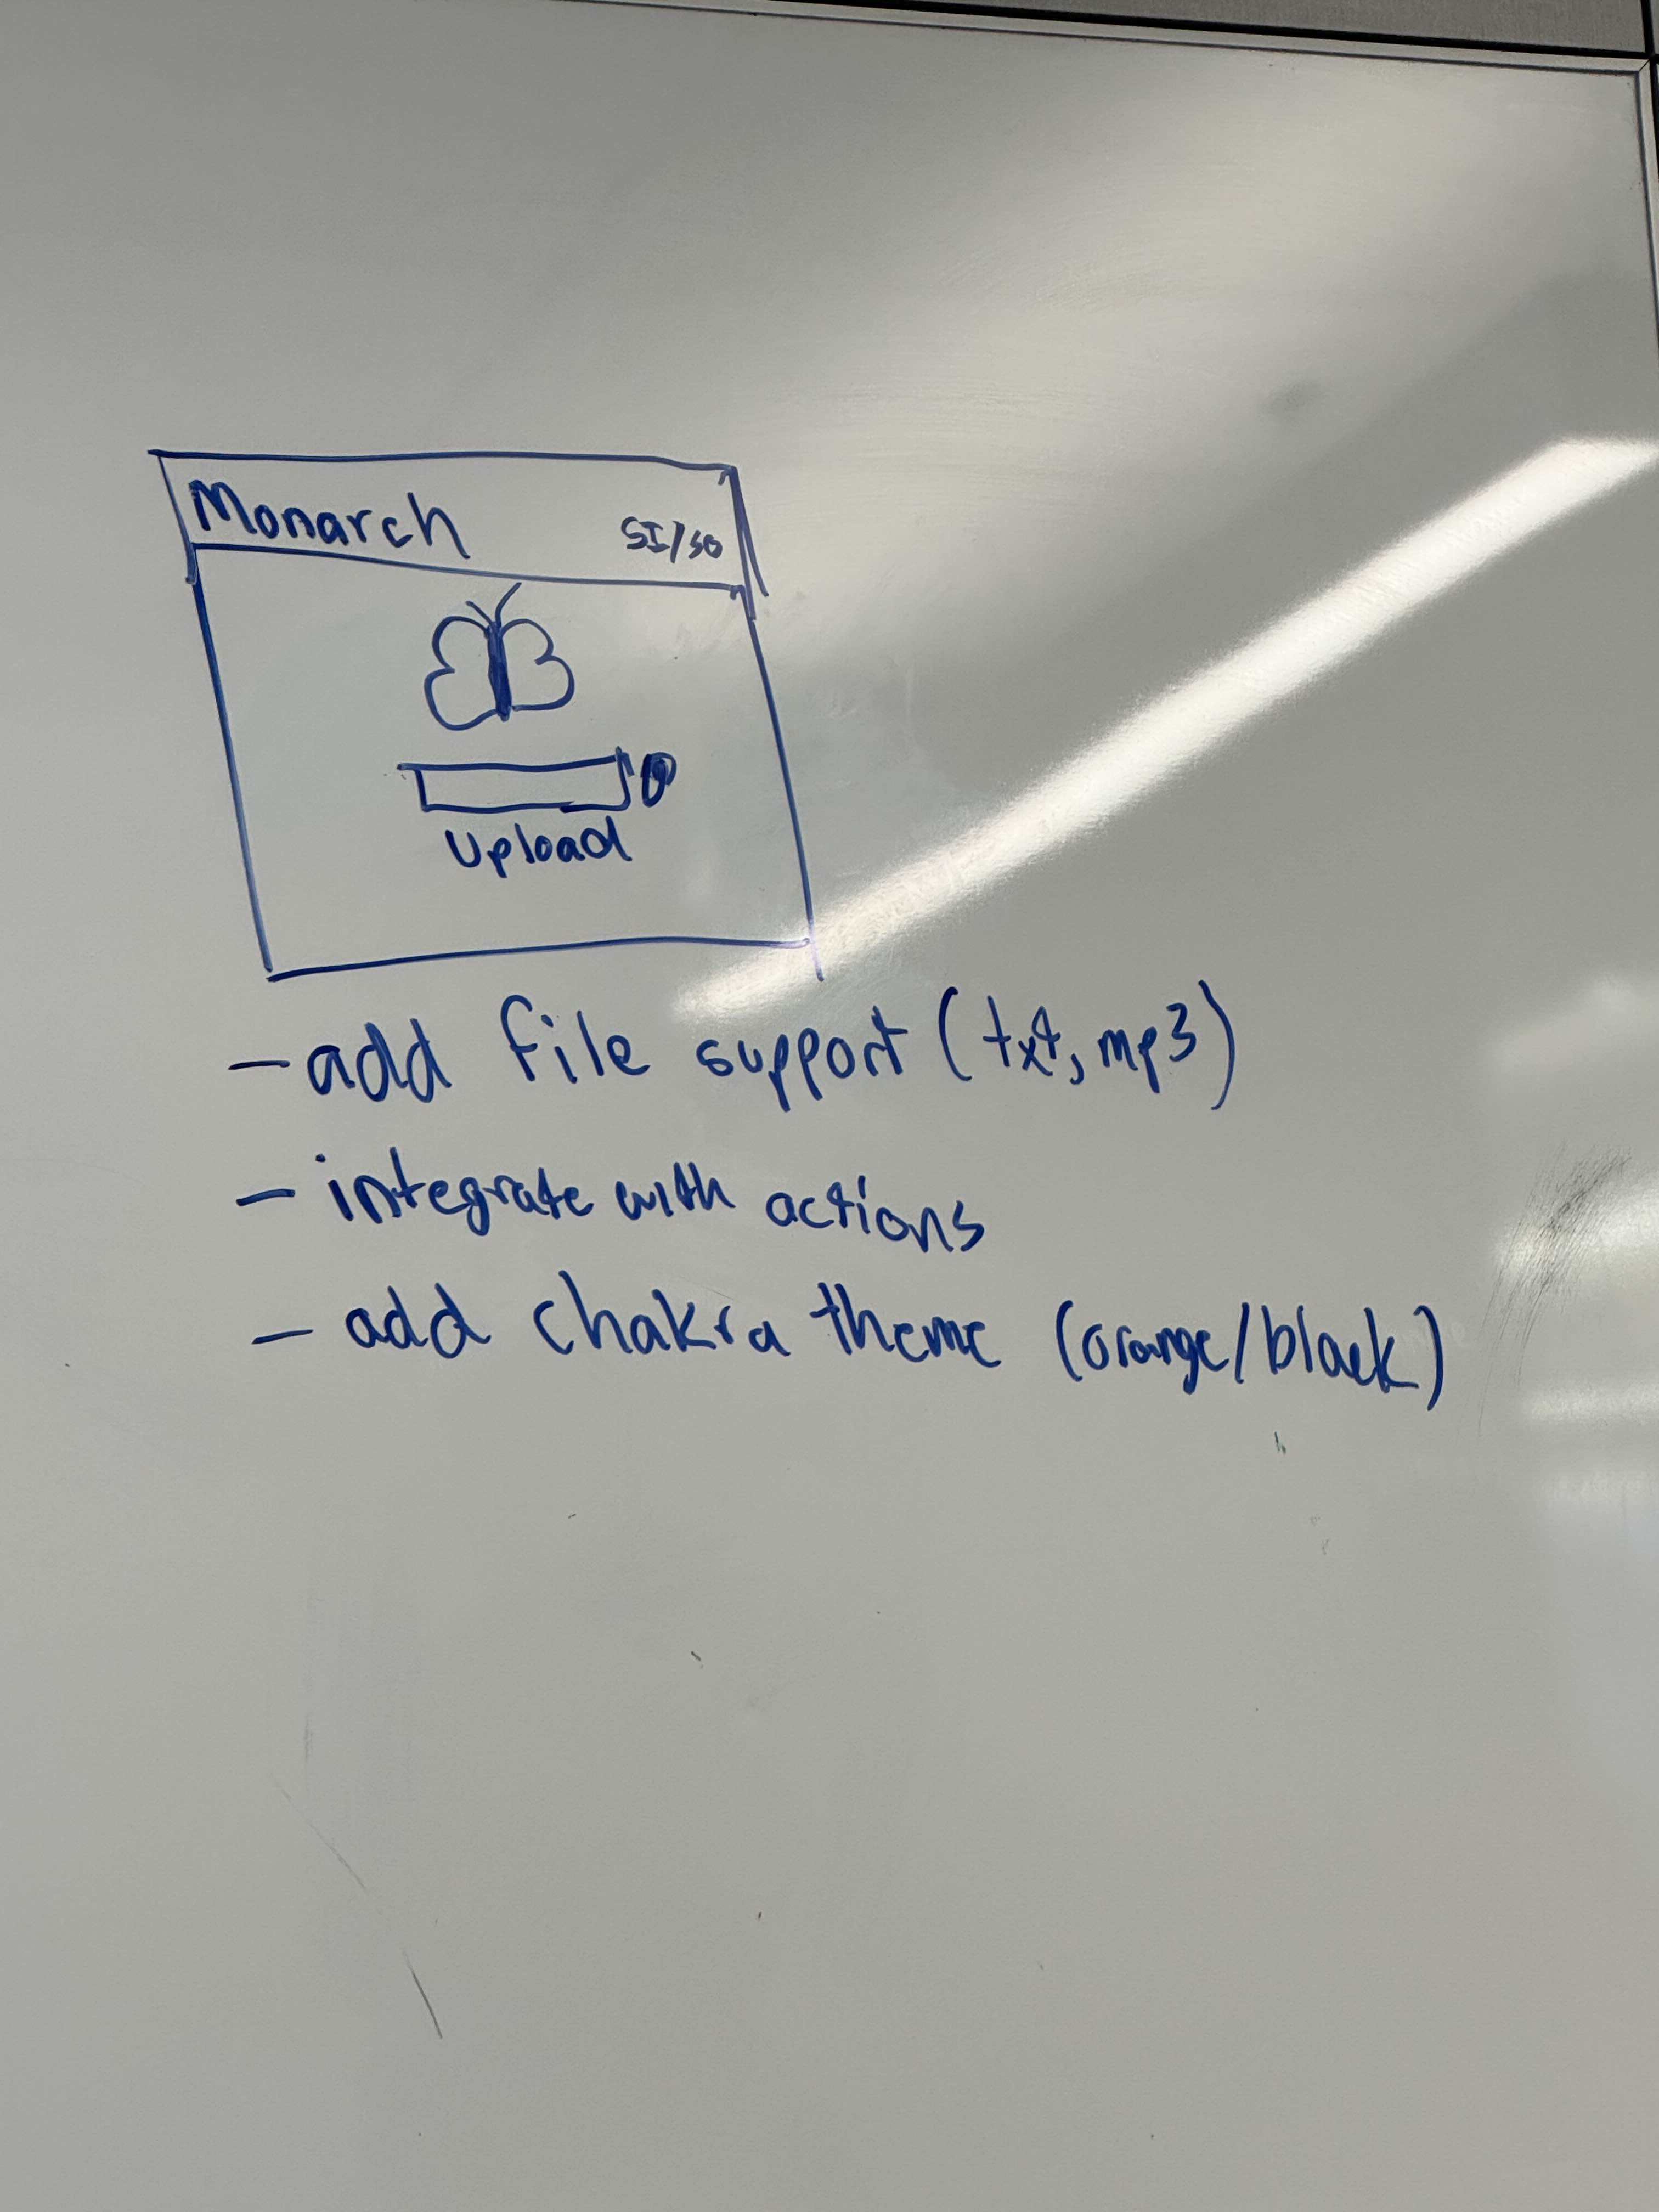 Monarch
SI/SO
Upload
- add file support (txt, mp3)
- integrate with actions
- add chakra theme (orange/black)